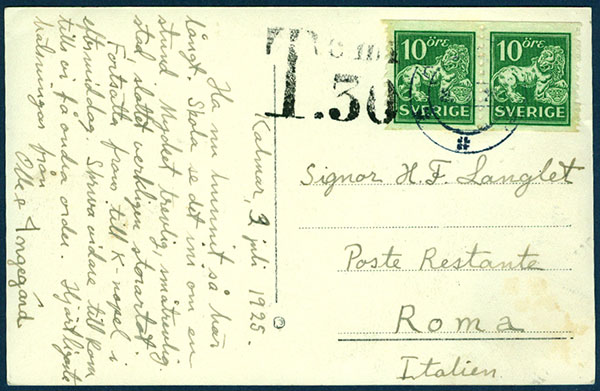 Kalmar, 2 juli 1925.
Ha nu hunnit så här
långt. Skola se det inre om en
stund. Mycket trevlig, småtrevlig
stad slottet verkligen storartat.
Fortsätta fram till K-nopel i
eftermiddag. Skriva vidare till Roma
tills vi få andra order. Hjärtligaste
hälsningar från
Olle & Ingegärd
T
T.30
10 ÖRE
SVERIGE
10 ÖRE
SVERIGE
Signor H. F. Langlet
Poste Restante
Roma
Italien